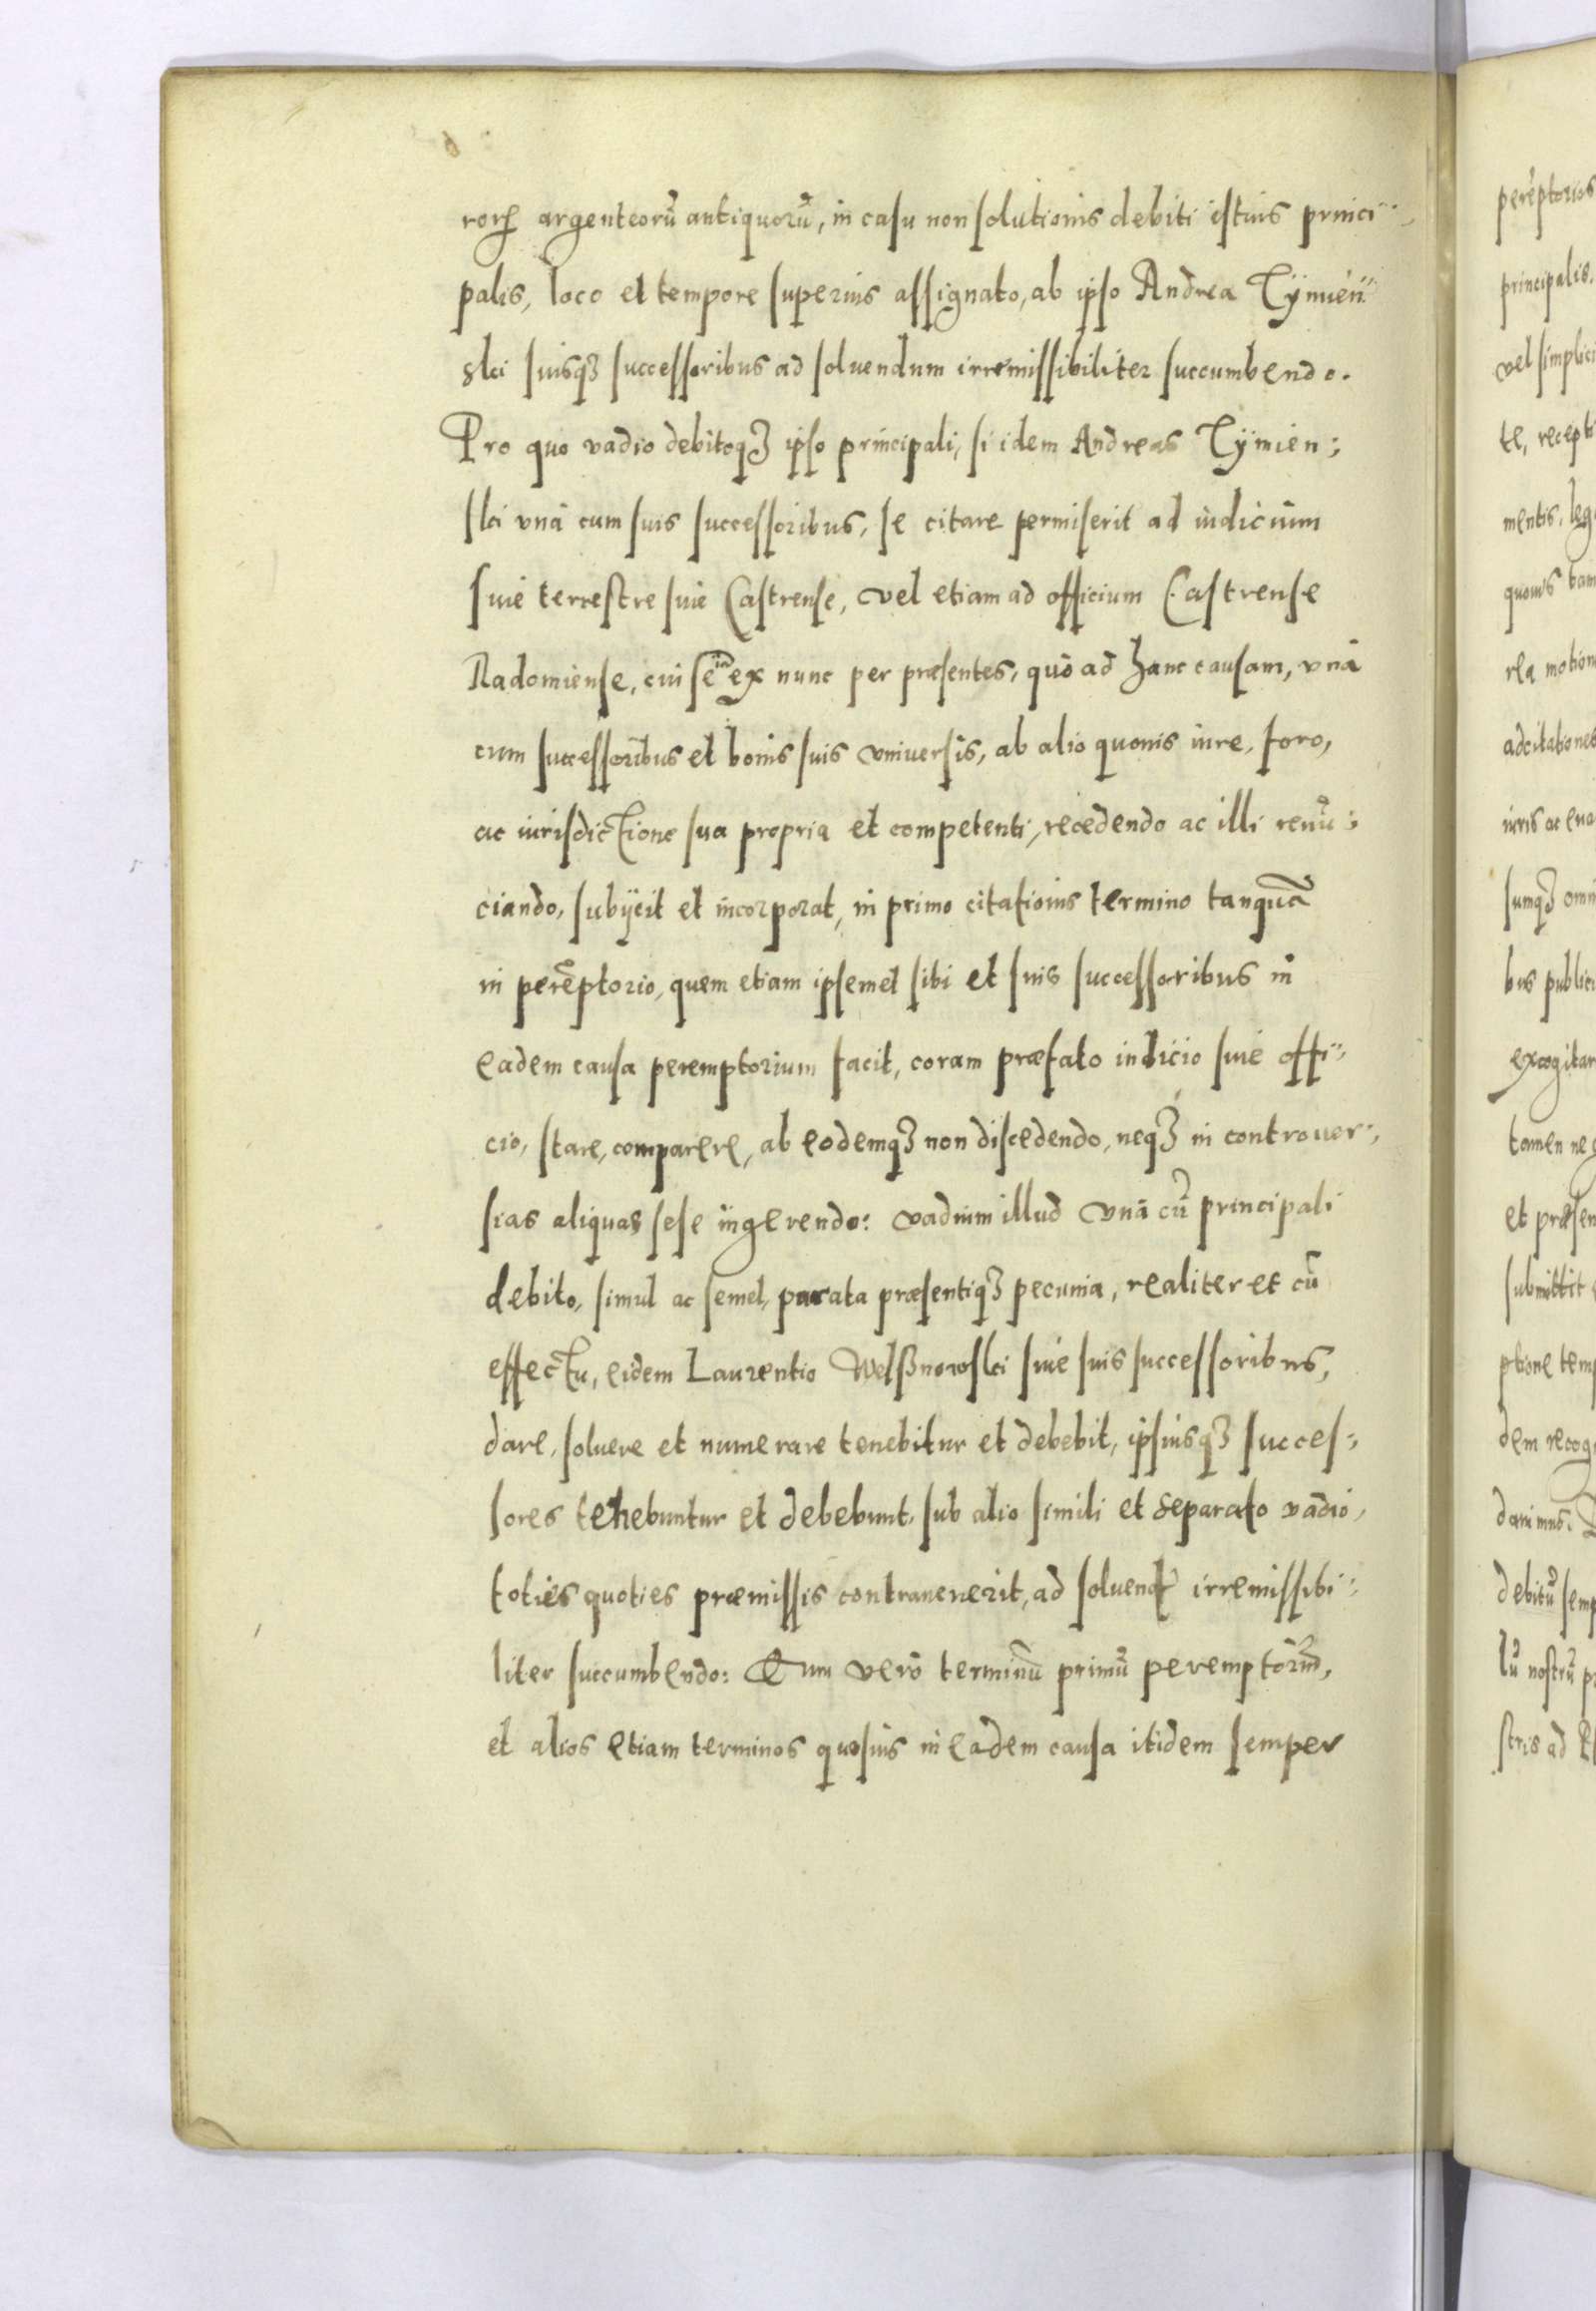 roꝝ argenteorū antiquorū, in casu non solutionis debiti istius princi-
palis, loco et tempore superius assignato, ab ipso Andrea Tÿmien-
ski suisqꝫ successoribus ad soluendum irremissibiliter succumbendo.
Pro quo vadio debitoqꝫ ipso principali, si idem Andreas Tÿmien-
ski vnà cum suis successoribus, se citare permiserit ad iudicium
siue terrestre siue Castrense, vel etiam ad officium Castrense
Radomiense, cui se iā ex nunc per præsentes, quo ad hanc causam, vnà
cum successoribus et bonis suis vniuersis, ab alio quouis iure, foro,
ac iurisdictione sua propria et competenti, recedendo ac illi renū-
ciando, subijcit et incorporat, in primo citationis termino tanquā
in perēptorio, quem etiam ipsemet sibi et suis successoribus in
eadem causa peremptorium facit, coram præfato iudicio siue offi-
cio, stare, comparere, ab eodemqꝫ non discedendo, neqꝫ in controuer-
sias aliquas sese ingerendo: vadium illud vnà cū principali
debito, simul ac semel, parata præsentiqꝫ pecunia, realiter et cū
effectu, eidem Laurentio Welßnowski siue suis successoribus,
dare, soluere et numerare tenebitur et debebit, ipsiusqꝫ succes-
sores tenebuntur et debebunt, sub alio simili et separato vadio,
toties quoties præmissis contrauenerit, ad soluend̄ irremissibi-
liter succumbendo: Eum verò terminū primū peremptoriū,
et alios etiam terminos quosuis in eadem causa itidem semper
perēptorios
principalis,
vel simplici
te, recepti
mentis, leg
quouis tam
rea motion
adcitatones
iuris ac eua
sumqꝫ omn
bus publici
excogitar
tamen ne
et præsen
submittit
ptione temp
dem recog
dauimus.
debitū semp
lū nostrū pr
stris ad